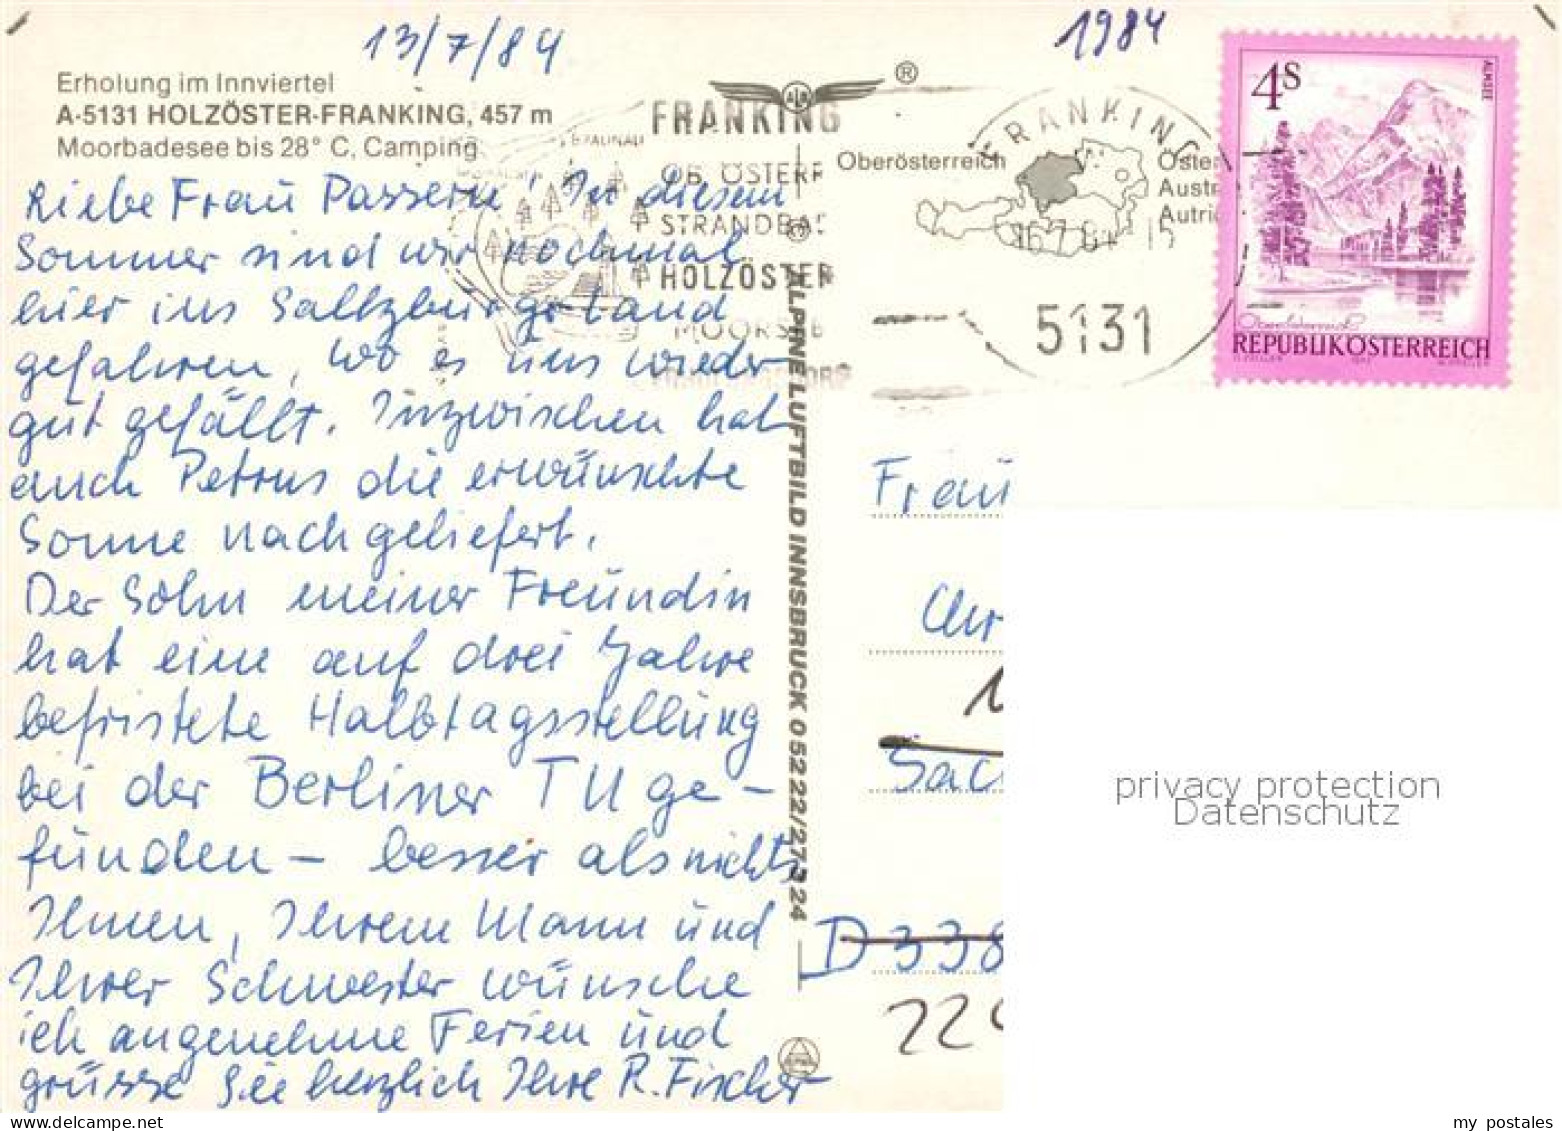 13/7/84
1984
Erholung im Innviertel
A-5131 HOLZÖSTER-FRANKING, 457 m
Moorbadesee bis 28° C, Camping
Liebe Frau Passern! In diesem
Sommer sind wir nochmal
hier ins Saltzburger Land
gefahren, wo es uns wieder
gut gefällt. Inzwischen hat
auch Petrus die erwünschte
Sonne nachgeliefert.
Der Sohn meiner Freundin
hat eine auf drei Jahre
befristete Halbtagsstellung
bei der Berliner TU ge-
funden – besser als nichts
Ihnen, Ihrem Mann und
Ihrer Schwester wünsche
ich angenehme Ferien und
grüsse Sie herzlich Ihre R. Fischer
ALPINE LUFTBILD INNSBRUCK 0 52 22/27 3 24
®
FRANKING
BRAUNAU
OB. ÖSTERR
STRANDBAD
HOLZÖSTER
Oberösterreich
FRANKING
16.7.84 15
5131
4S
ALMSEE
Oberösterreich
REPUBLIK ÖSTERREICH
Frau
Chr
1
Sac
D 338
22
privacy protection
Datenschutz
my postales